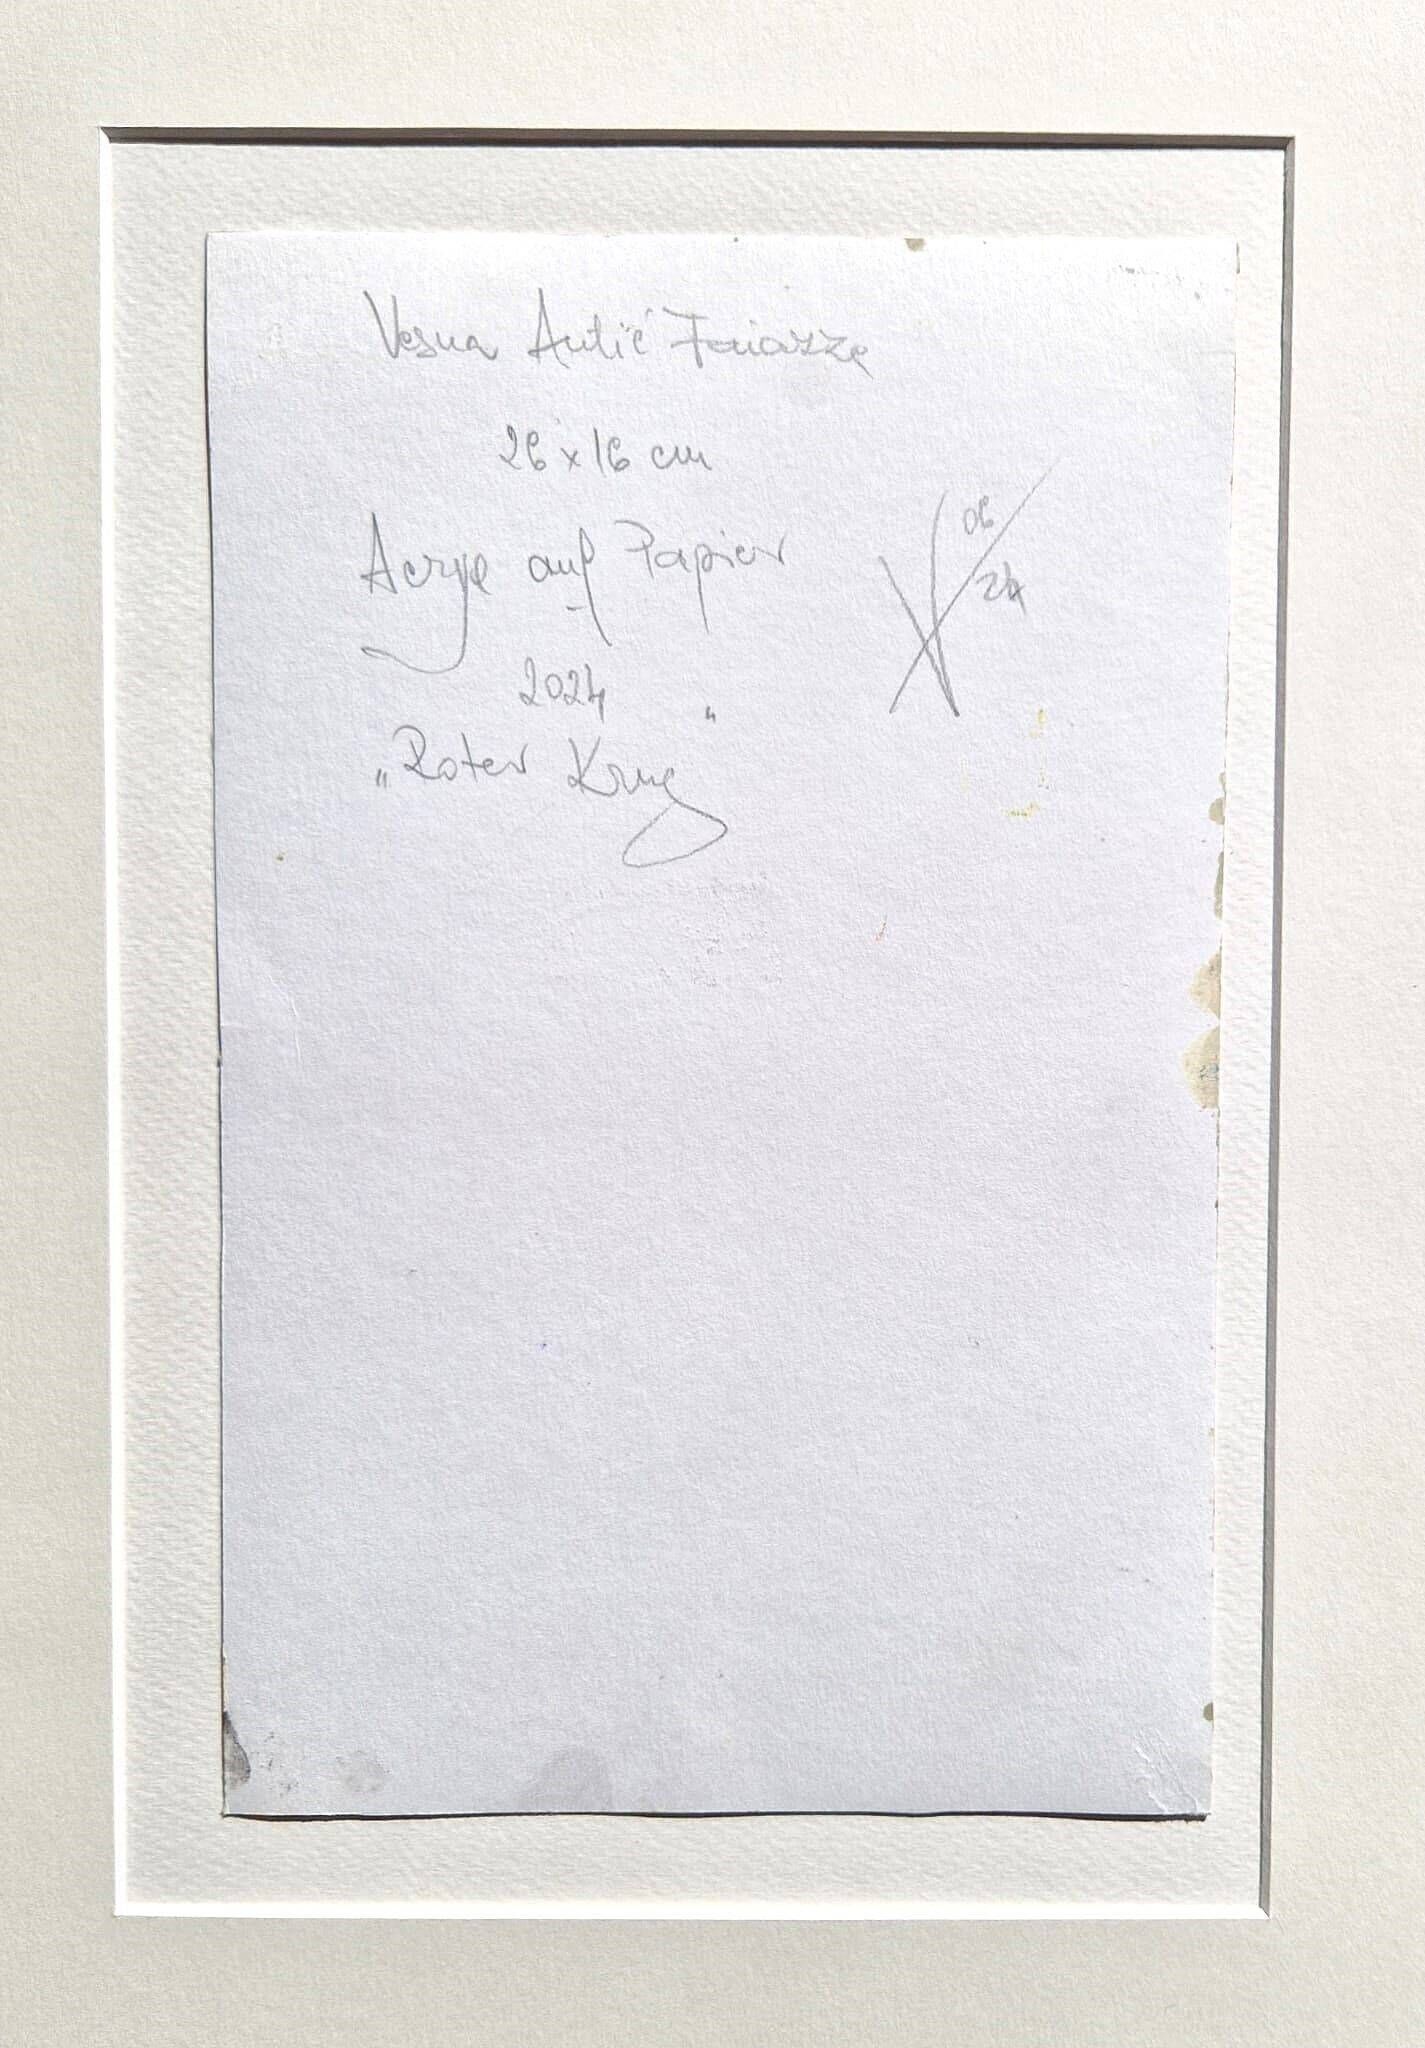 Vesna Antić
26 x 16 cm
Acryl auf Papier
06
24
2024
„Roter Krug"